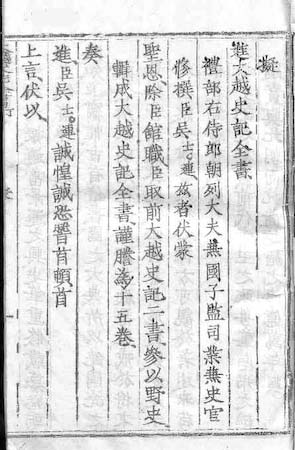 擬
進大越史記全書
禮部右侍郎朝列大夫兼國子監司業兼史官
修撰臣吳士連茲者伏蒙
聖恩除臣館職臣取前大越史記二書參以野史
輯成大越史記全書謹謄為十五卷
奏
進臣吳士連誠惶誠恐稽首頓首
上言伏以